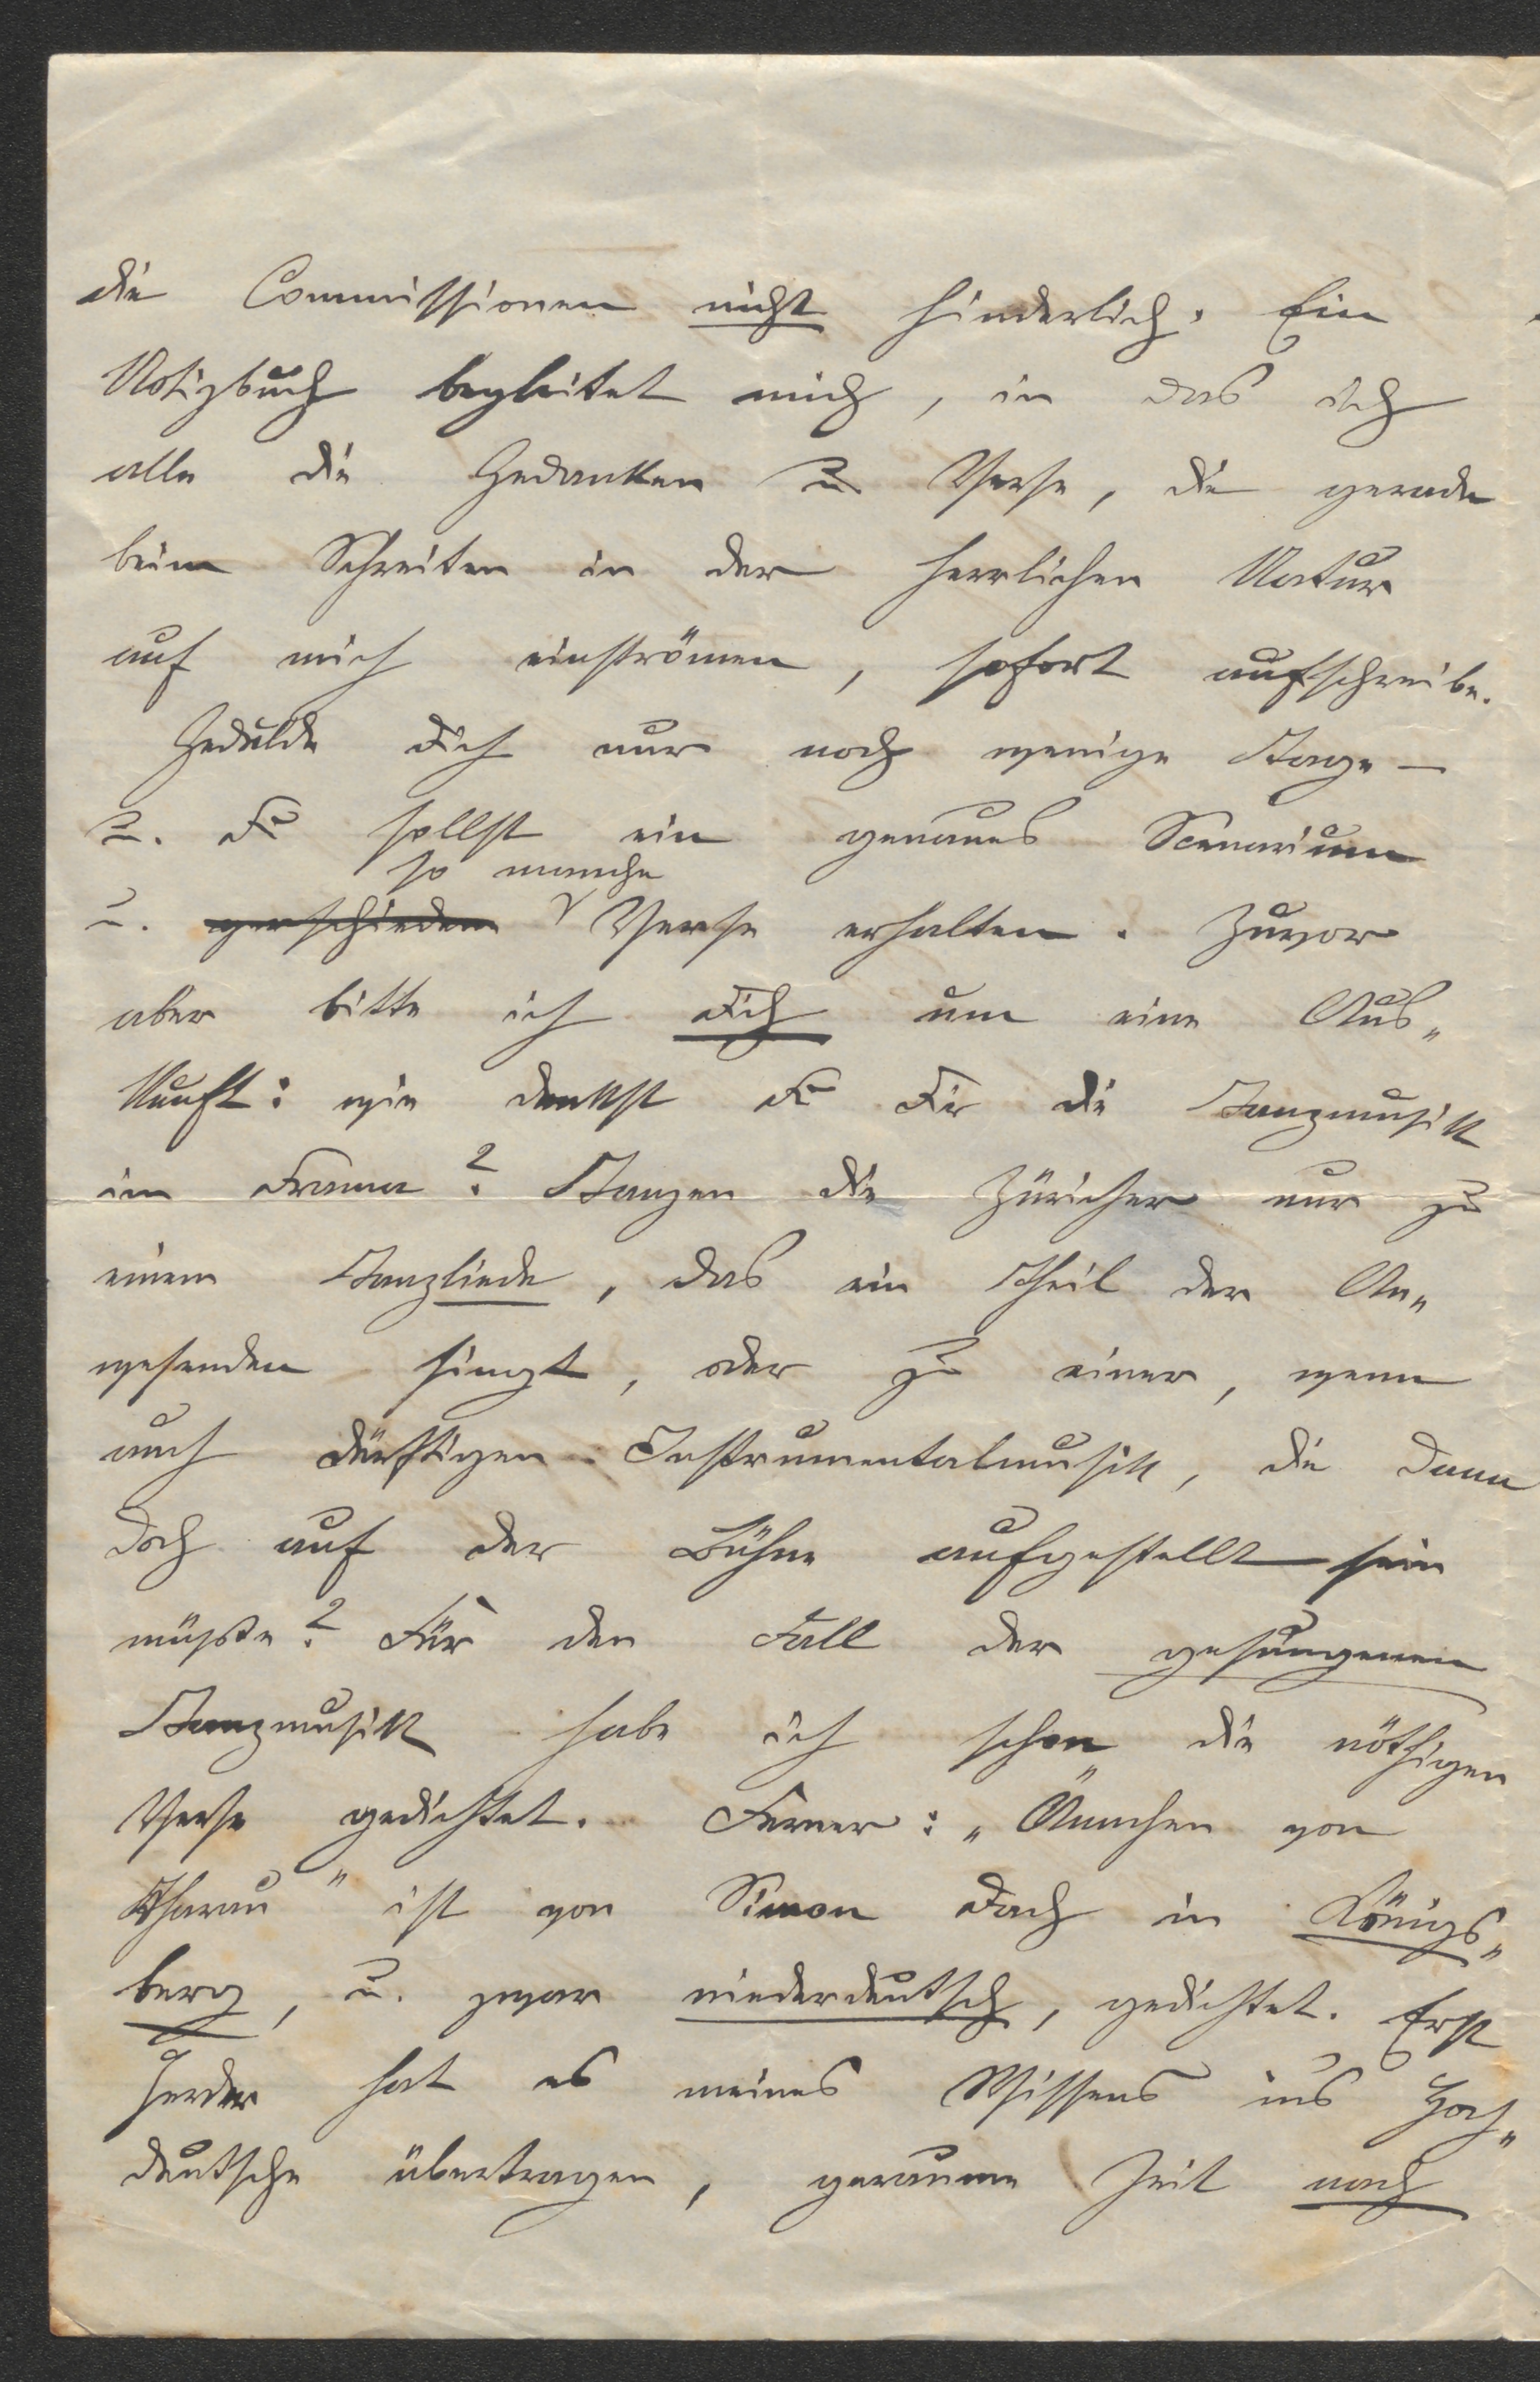 die Commissionen nicht hinderlich. Ein
Notizbuch begleitet mich, in das ich
alle die Gedanken u. Verse, die gerade
beim Schreiten in der herrlichen Natur
auf mich einströmen, sofort aufschreibe.
Gedulde Dich nur noch wenige Tage –
u. Du sollst ein genaues Scenarium
so manche
u. verschieden Verse erhalten. Zuvor
aber bitte ich Dich um eine Aus„
kunft: wie denkst Du Dir die Tanzmusik
im Drama? Tanzen die Züricher nur zu
einem Tanzliede, das ein Theil der An„
wesenden singt, oder zu einer, wenn
auch dürftigen Instrumentalmusik, die dann
doch auf der Bühne aufgestellt sein
müßte? Für den Fall der gesungenen
Tanzmusik habe ich schon die nöthigen
Verse gedichtet. Ferner: „Ännchen von
Tharau" ist von Simon Dach in Königs„
berg, u. zwar niederdeutsch, gedichtet. Erst
Herder hat es meines Wissens ins Hoch„
deutsche übertragen, geraume Zeit nach